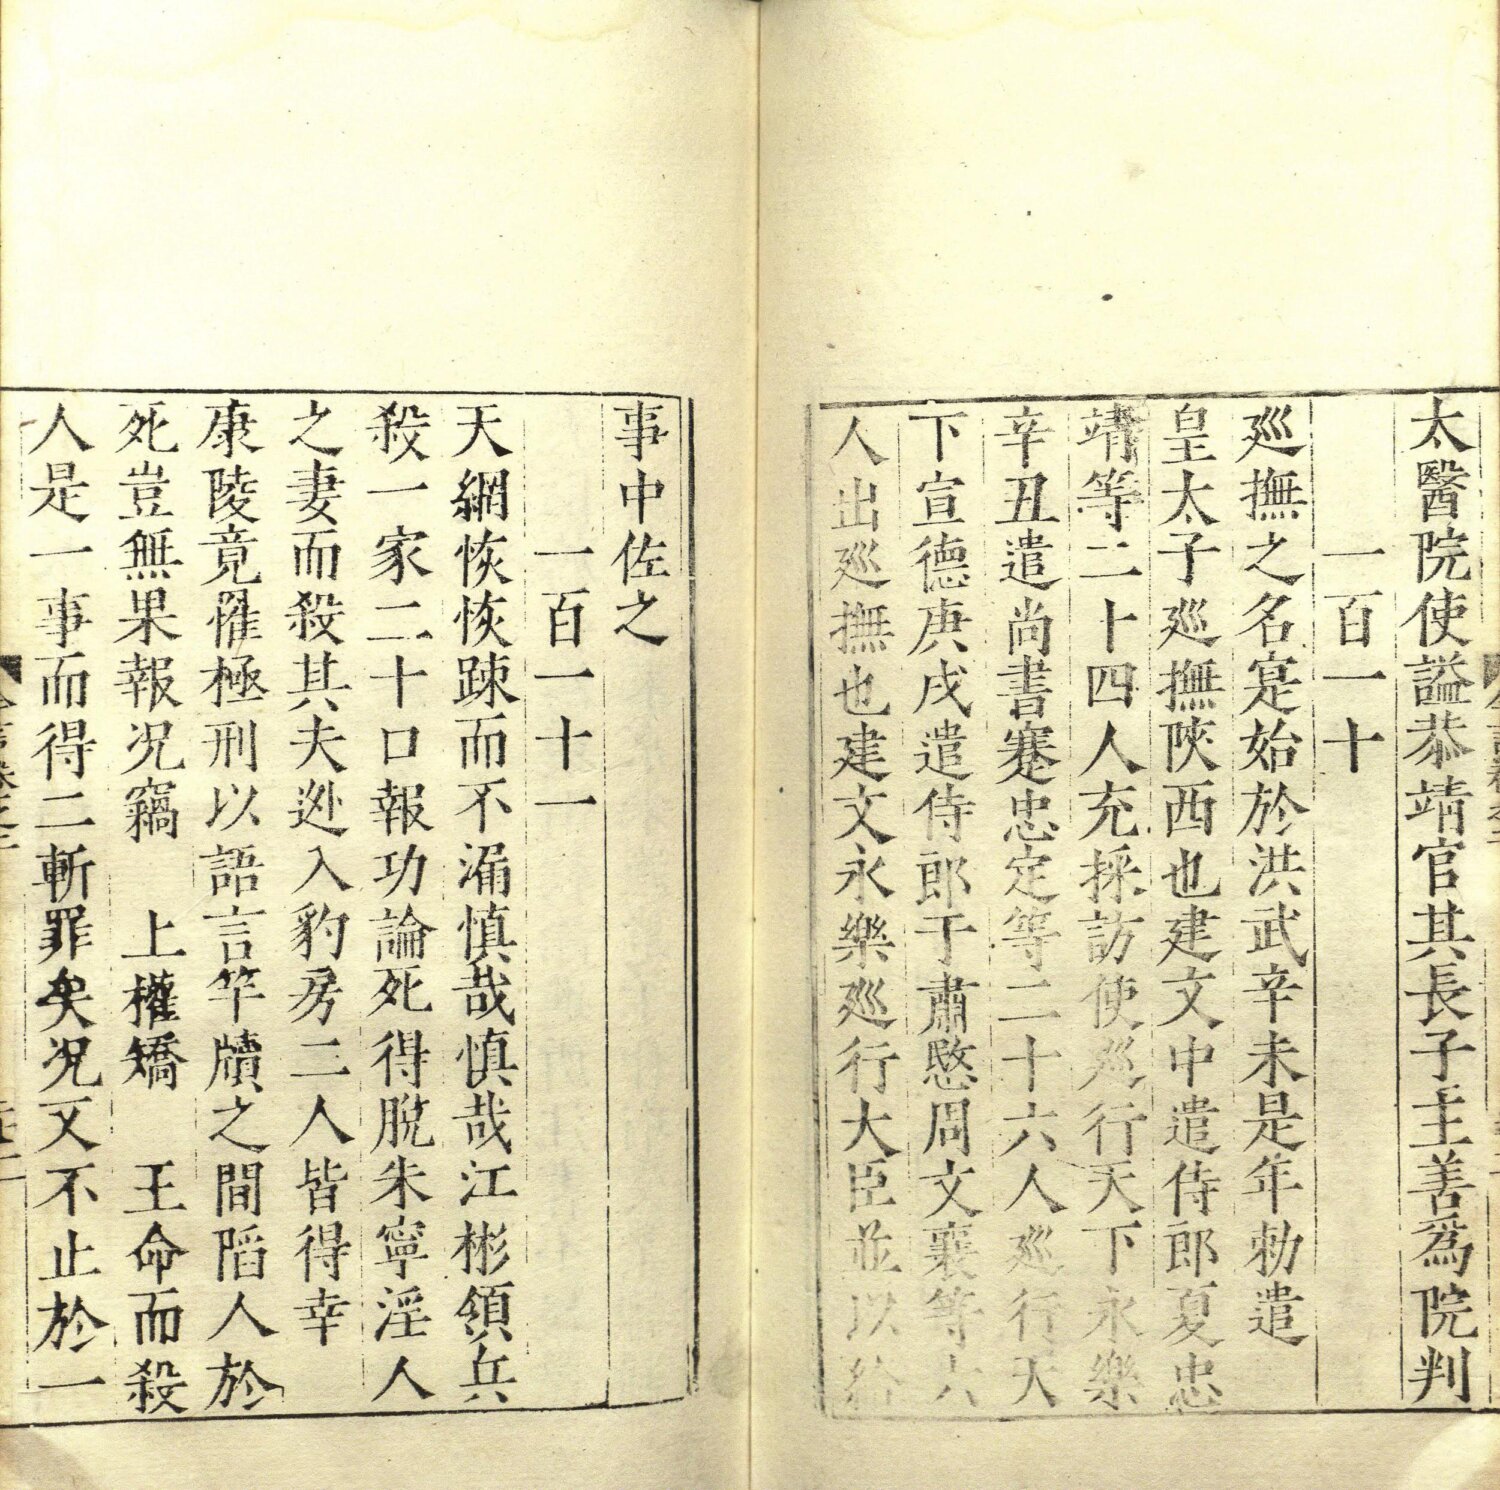 太醫院使謚恭靖官其長子主善爲院判
一百一十
廵撫之名寔始於洪武辛未是年勅遣
皇太子廵撫陝西也建文中遣侍郎夏忠
靖等二十四人充採訪使廵行天下永樂
辛丑遣尚書蹇忠定等二十六人廵行天
下宣德庚戌遣侍郎于肅愍周文襄等六
人出廵撫也建文永樂廵行大臣並以給
事中佐之
一百一十一
天網恢恢踈而不漏慎哉慎哉江彬領兵
殺一家二十口報功論死得脫朱寧淫人
之妻而殺其夫迯入豹房二人皆得幸
康陵竟罹極刑以語言竿牘之間陷人於
死豈無果報况竊 上權矯 王命而殺
人是一事而得二斬罪矣况又不止於一